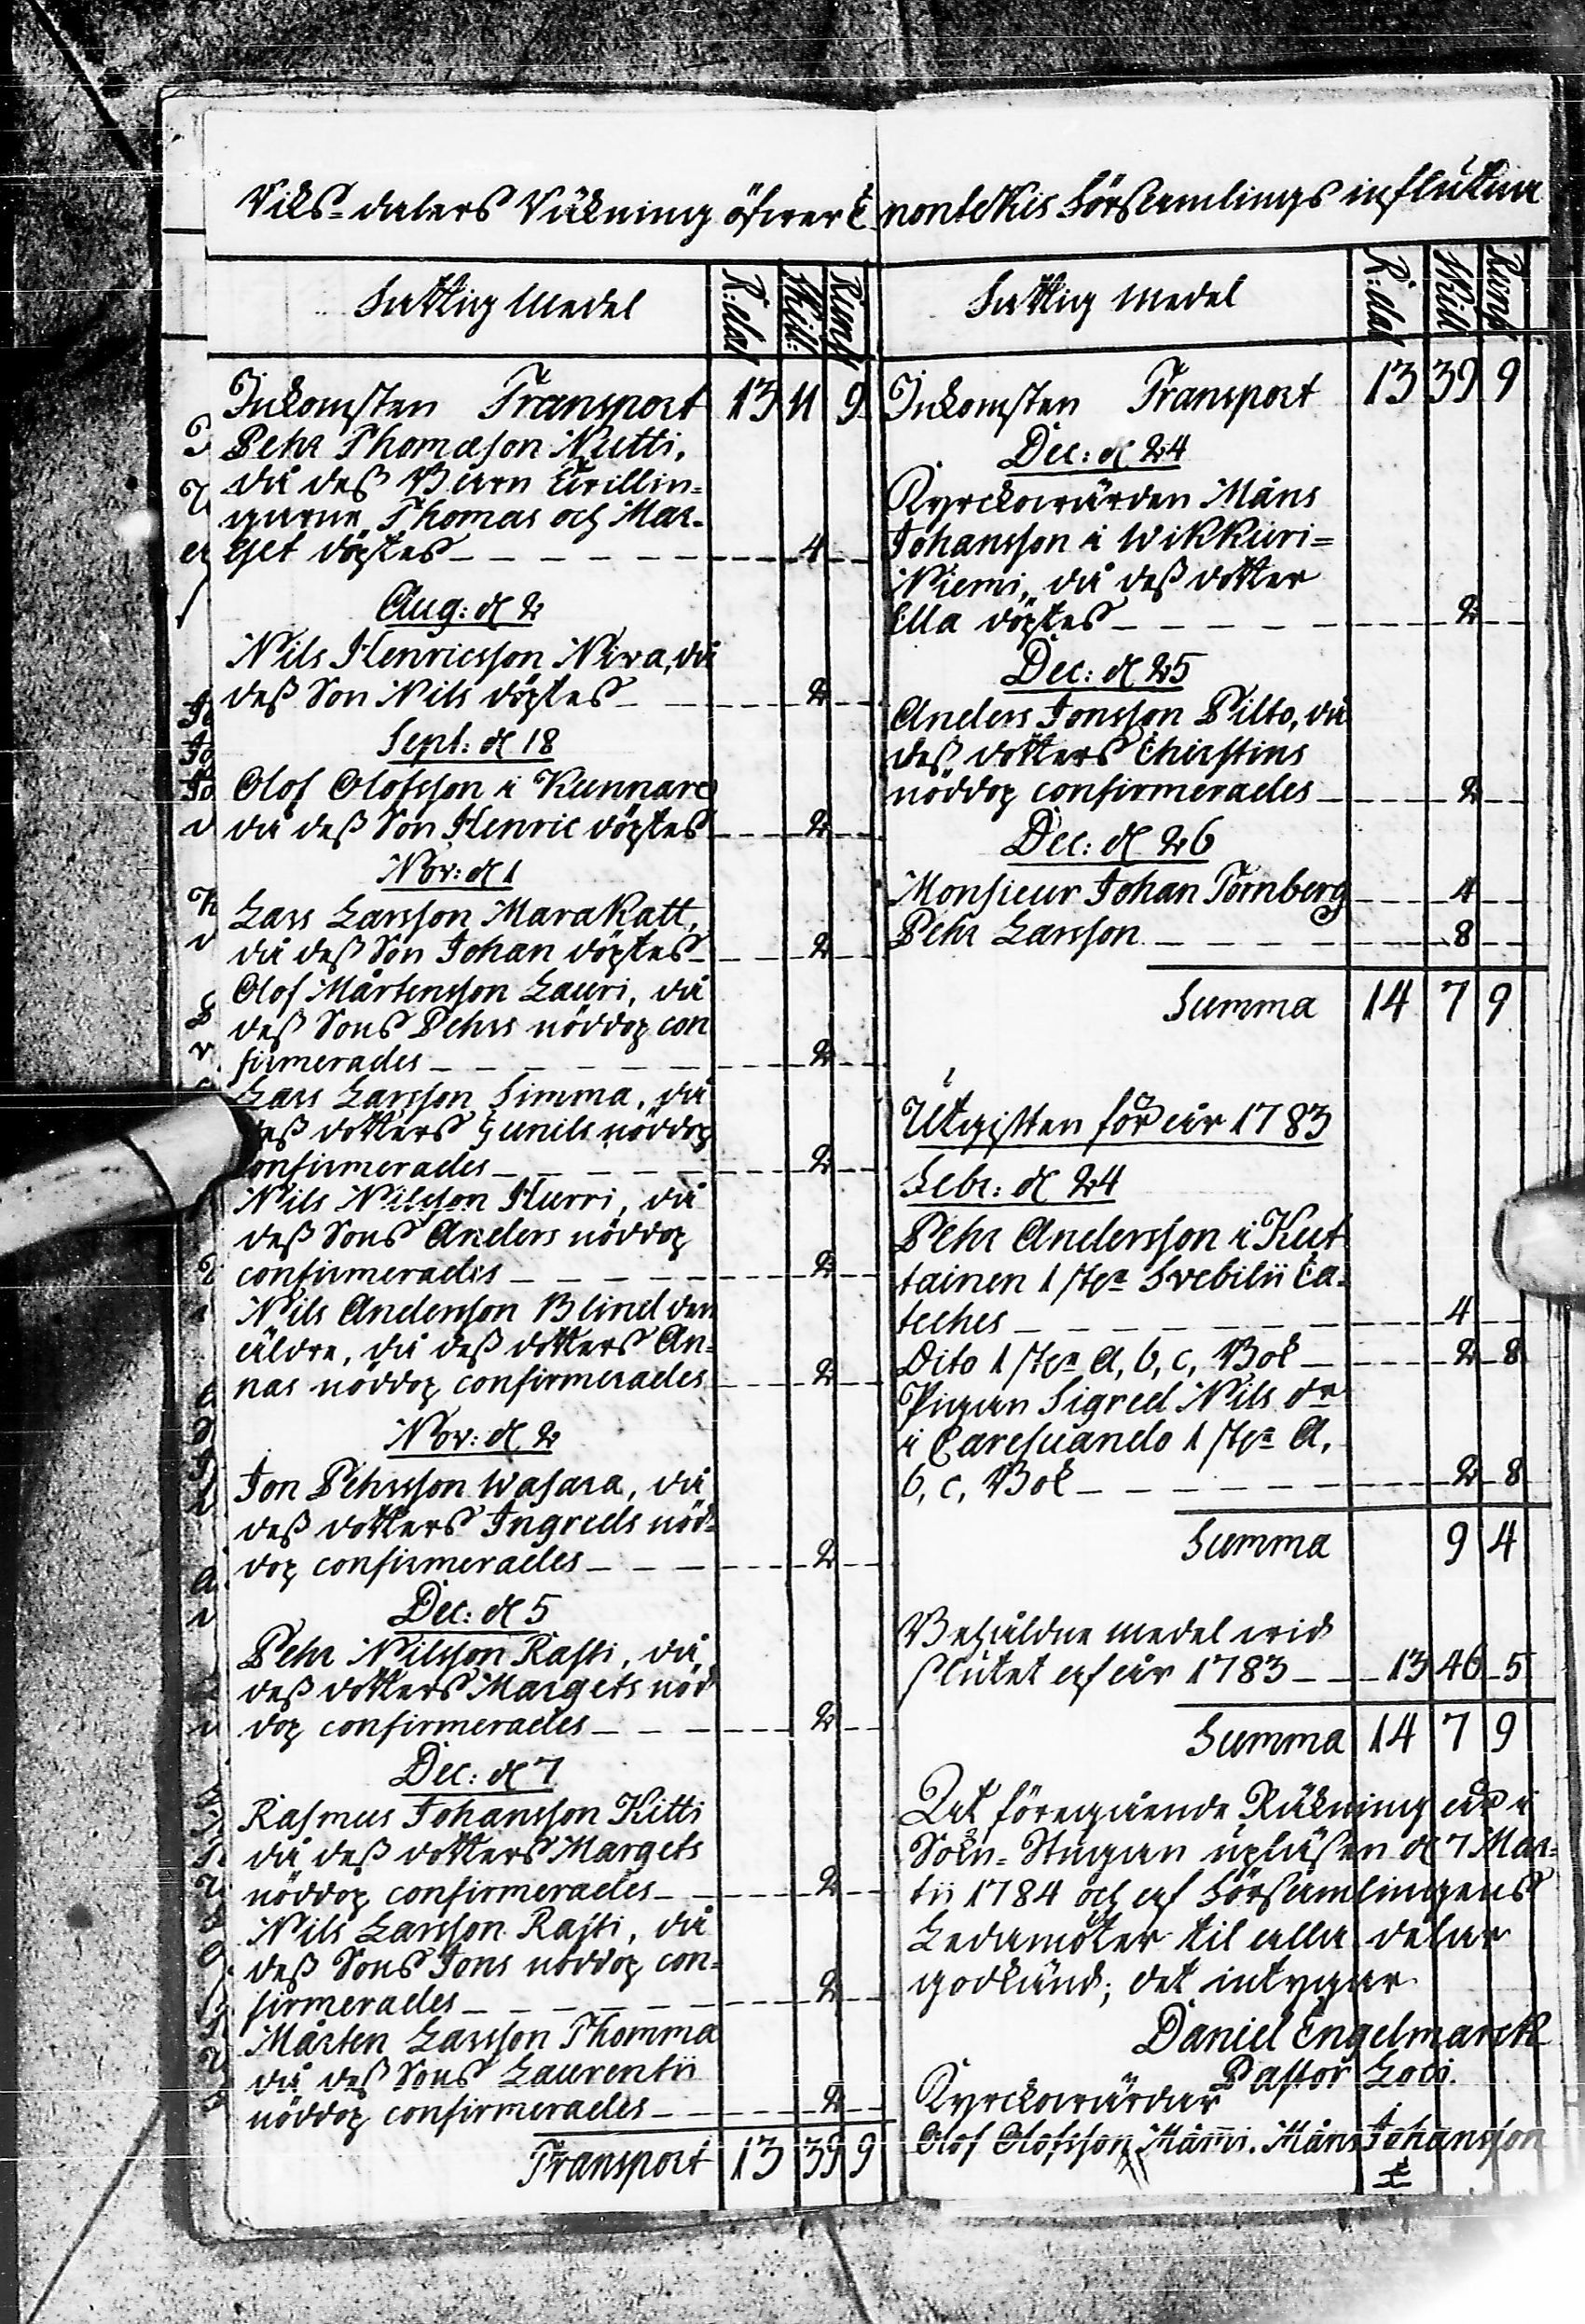 Riks-dalers Räkning öfwer Enontekis Församlings influtna
Fattig Medel R:dal Skill: Runst
Inkomsten Transport 13 11 9
Pehr Thomasson Nutti,
då deß Barn Twillin-
garne, Thomas och Mar-
get döptes 4
Aug: d 2
Nils Henricsson Niva, då
deß Son Nils döptes 2
Sept: d 18
Olof Olofsson i Kunnare
då deß Son Henric döptes 2
Nov: d 1
Lars Larsson Marakatt,
då deß Son Johan döptes 2
Olof Mårtensson Lauri, då
deß Sons Pehrs nöddop con
firmerades 2
Lars Larsson Simma, då
deß dotters Gunils nöddop
confirmerades 2
Nils Nilsson Hurri, då
deß Sons Anders nöddop
confirmerades 2
Nils Andersson Blind den
äldre, då deß dotters An-
nas nöddop confirmerades 2
Nov: d 2
Jon Pehrsson Wasara, då
deß dotters Ingreds nöd-
dop confirmerades 2
Dec: d 5
Pehr Nilsson Rasti, då
deß dotters Margets nöd
dop confirmerades 2
Dec: d 7
Rasmus Johansson Kitti
då deß dotters Margets
nöddop confirmerades 2
Nils Larsson Rasti, då
deß Sons Jons nöddop con-
firmerades 2
Mårten Larsson Thomma
då deß Sons Laurentii
nöddop confirmerades 2
Transport 13 39 9
Fattig Medel R:dal Skill Runst
Inkomsten Transport 13 39 9
Dec: d 24
Kyrckowärden Måns
Johansson i Wikkuri=
Niemi, då deß dotter
Ella döptes 2
Dec: d 25
Anders Jonsson Pilto, då
deß dotters Chirstins
nöddop confirmerades 2
Dec: d 26
Monsieur Johan Törnberg 4
Pehr Larsson 8
Summa 14 7 9
Utgiften för år 1783
Febr: d 24
Pehr Andersson i Kut
tainen 1 st. Svebilii Ca-
teches 4
Dito 1 st. A, b, c, Bok 2 8
Pigan Sigred Nils dr
i Caresuando 1 st. A,
b, c, Bok 2 8
Summa 9 4
Behåldne medel wid
slutet af år 1783 13 46 5
Summa 14 7 9
At föregående Räkning är i
Sokn-Stugan upläsen d 7 Mar-
tii 1784 och af Församlingens
Ledamöter til alla delar
godkänd; det intygar
Daniel Engelmarck
Pastor Loci.
Kyrckowärdar
Olof Olofsson Mämi. Måns Johansson